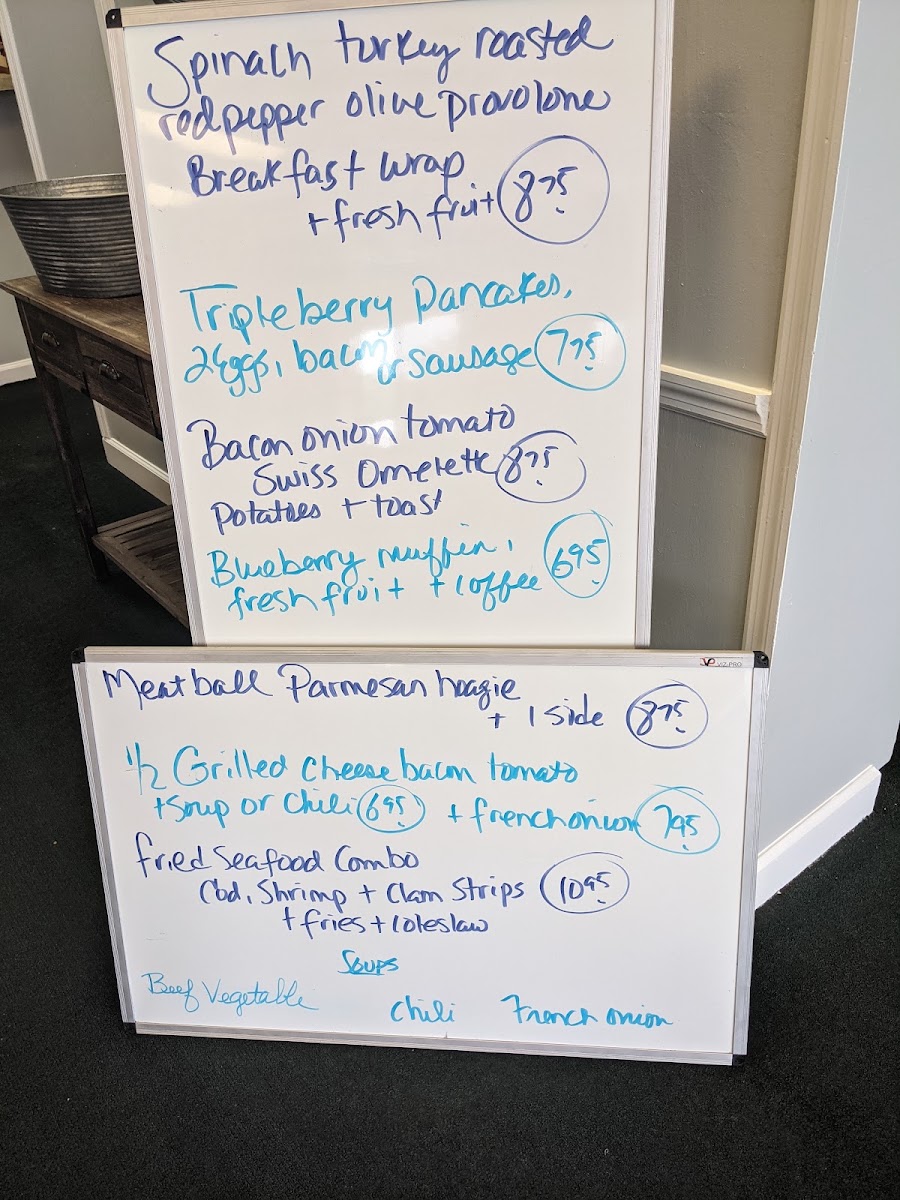 Spinach turkey roasted
red pepper olive provolone
Breakfast wrap
+ fresh fruit 875
Tripleberry Pancakes,
2 eggs, bacon or sausage 775
Bacon onion tomato
Swiss Omelette 875
Potatoes + toast
Blueberry muffin,
fresh fruit + coffee 695
VIZ-PRO
Meatball Parmesan hoagie
+ 1 side 875
1/2 Grilled cheese bacon tomato
+ soup or chili 695 + french onion 795
Fried Seafood Combo
Cod, Shrimp + Clam Strips 1095
+ fries + coleslaw
Soups
Beef Vegetable
Chili French onion